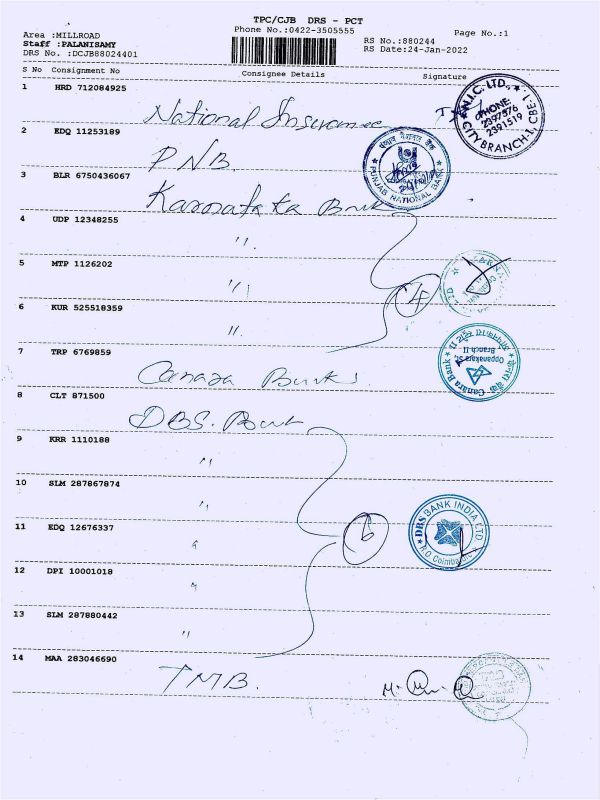 TPC/CJB DRS - PCT
Phone No.:0422-3505555
Page No.:1
Area :MILLROAD
Staff :PALANISAMY
DRS No. :DCJB88024401
RS No.:880244
RS Date:24-Jan-2022
S No Consignment No Consignee Details Signature
1 HRD 712084925
National Insurance
N.I.C. LTD.,
PHONE:
2397876
2391519
CITY BRANCH-1, CBE-1
2 EDQ 11253189
PNB.
PUNJAB NATIONAL BANK
3 BLR 6750436067
Karnataka Bank
4 UDP 12348255
".
5 MTP 1126202
"
4
6 KUR 525518359
".
7 TRP 6769859
Canara Bank
Canara Bank
Oppanakara St.
Branch II
8 CLT 871500
DBS. Bank
9 KRR 1110188
"
10 SLM 287867874
"
11 EDQ 12676337
"
6
DBS BANK INDIA LTD
R.O. Coimbatore
12 DPI 10001018
"
13 SLM 287880442
"
14 MAA 283046690
TMB.